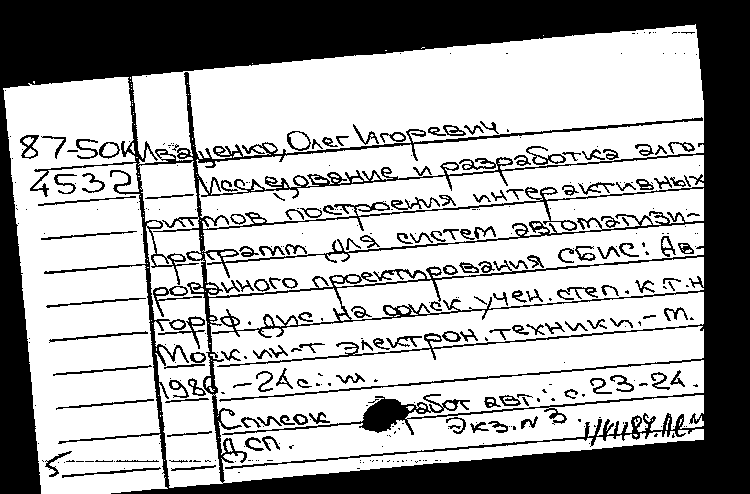 87-50К Иващенко, Олег Игоревич.
4532 Исследование и разработка алго-
ритмов построения интерактивных
программ для систем автоматизи-
рованного проектирования СБИС: Ав-
тореф. дис. на соиск. учен. степ. к.т.н
Моск. ин-т электрон. техники.-М.,
1986.-24с.: ил.
Список работ авт.: с. 23-24.
ДСП. Экз. N 3.
5